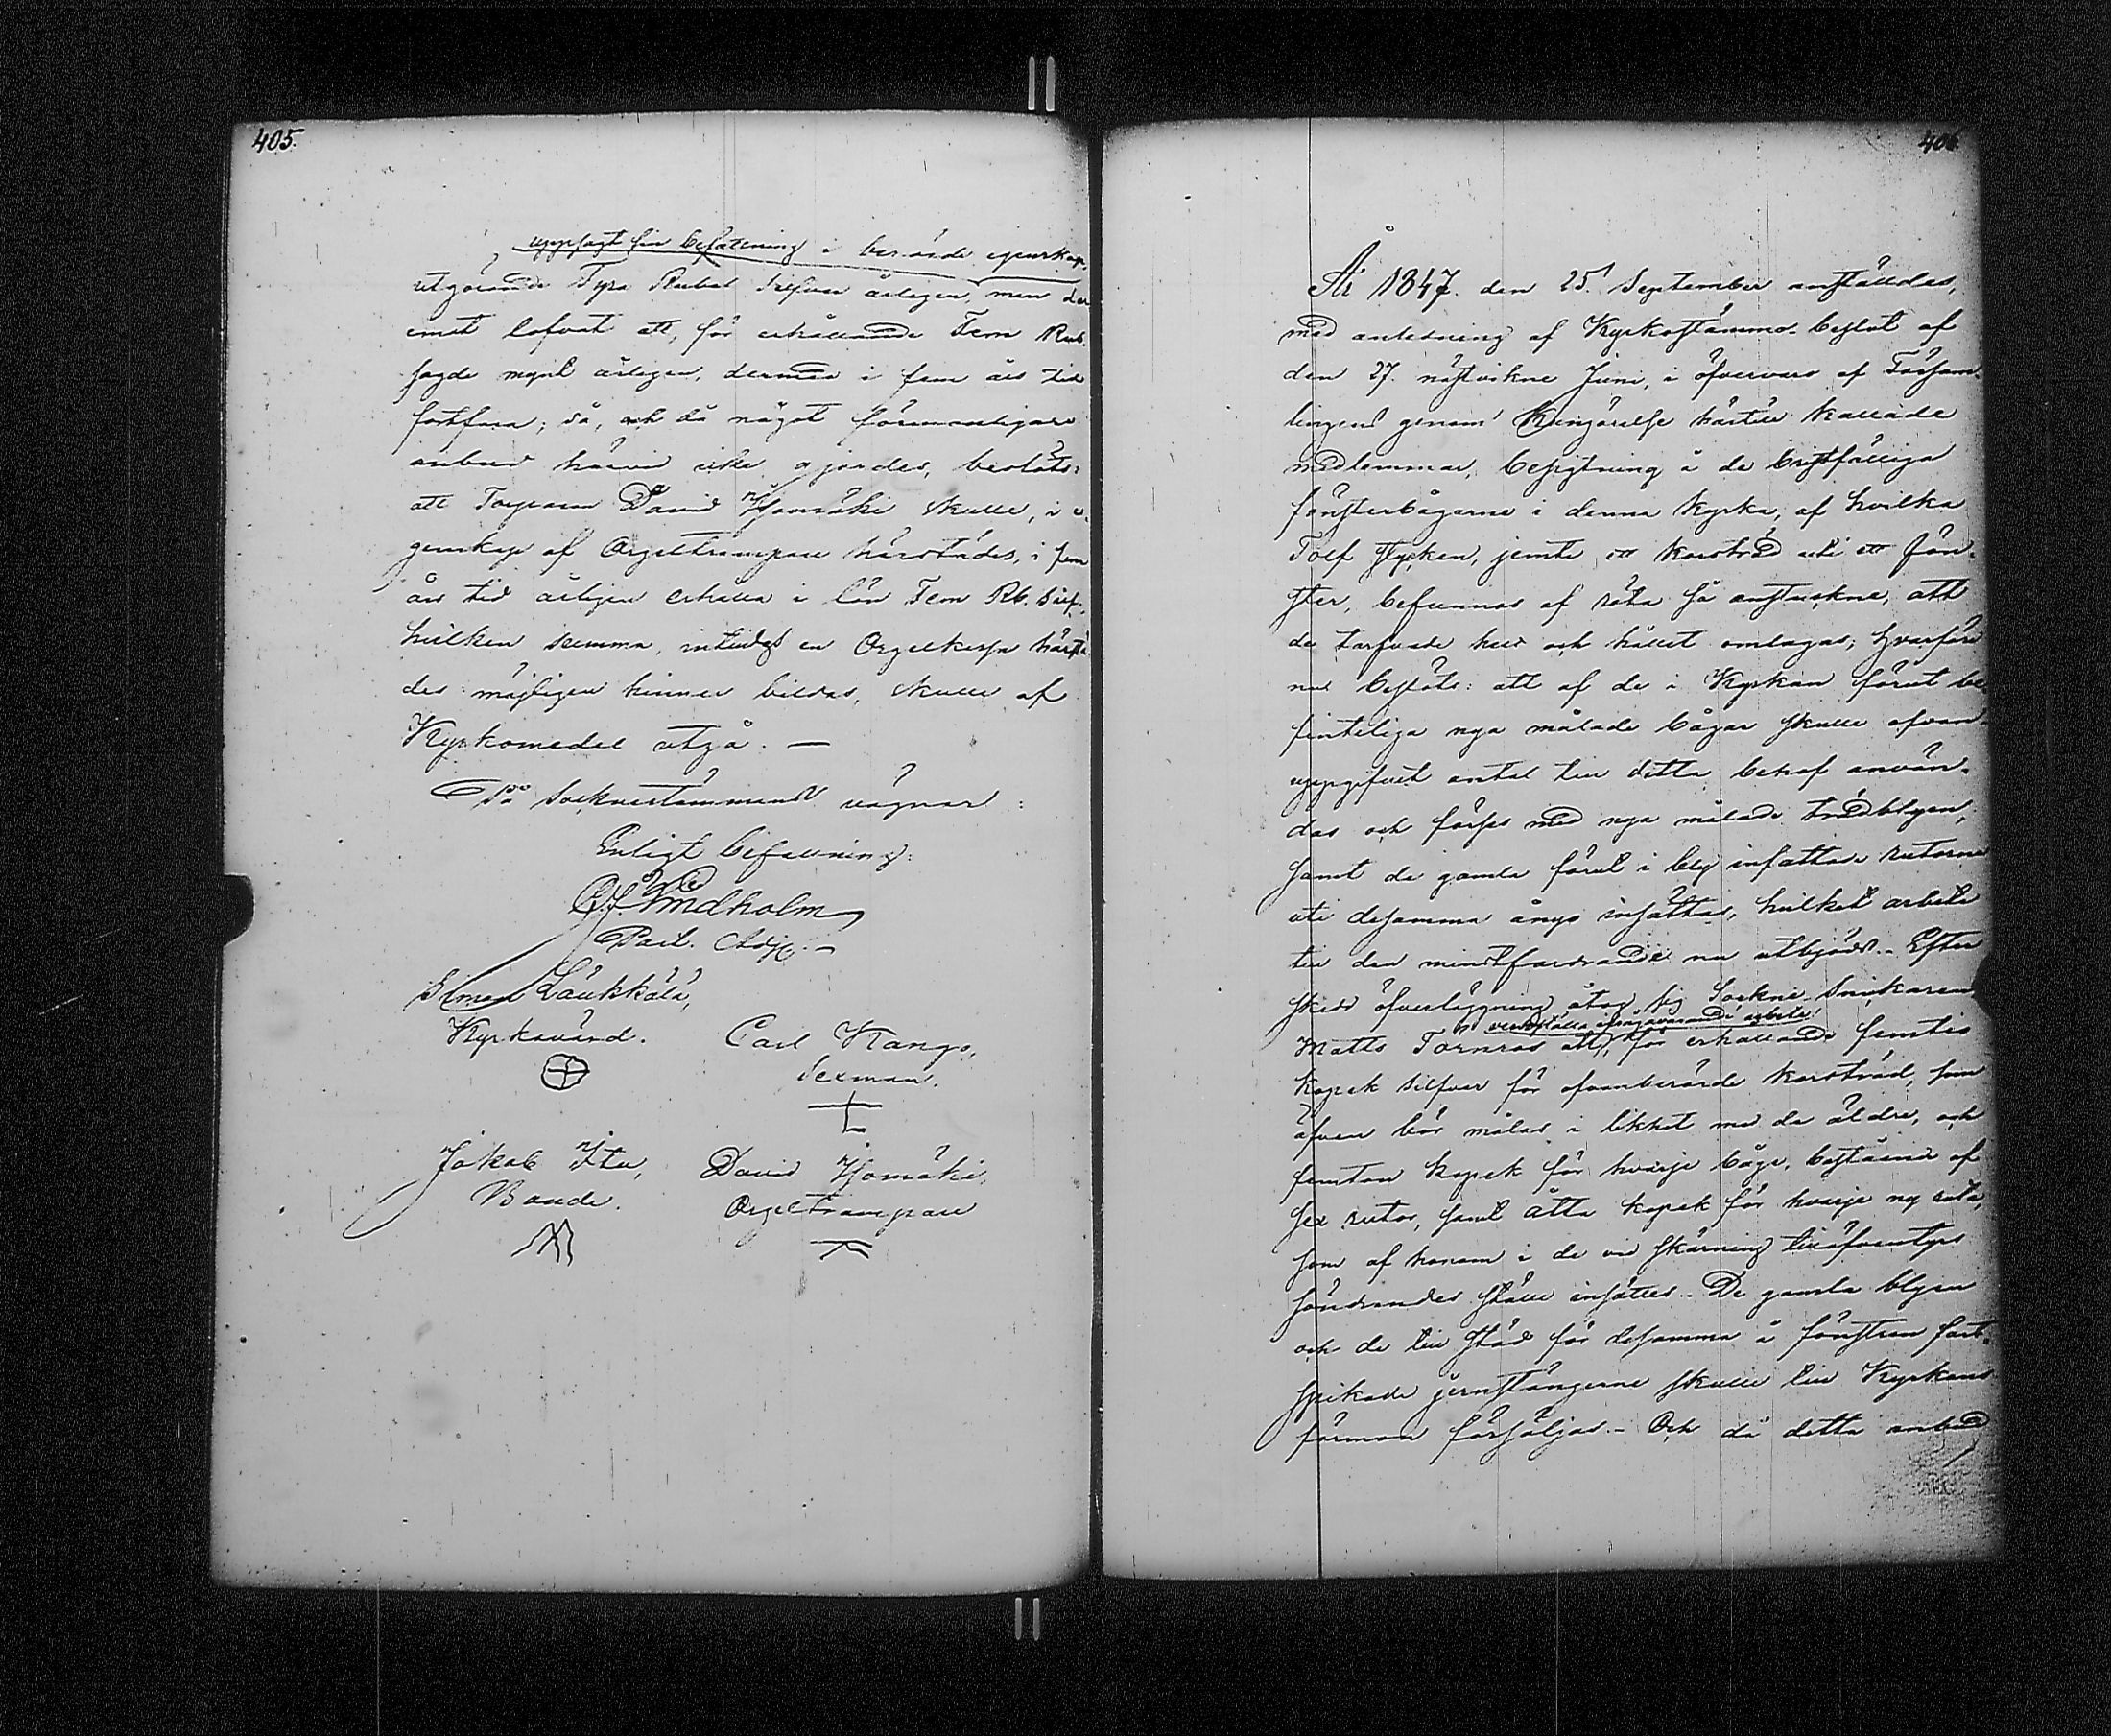 405.
uppsagt sin befattning i berörde egenskap,
utgörande Fyra Rubel Silfver årligen, men der
emot lofvat att, för erhållande Fem Rub.
sagde mynt årligen, dermed i fem års tid
fortfara; så, och då något förmånligare
anbud härvid icke gjordes, beslöts:
att Torparen David Ijomäki skulle, i e-
genskap af Orgeltrampare härstädes, i fem
års tid årligen erhålla i lön Fem Rb. Silf.,
hvilken summa, intildess en Orgelkassa härstä-
des möjligen hinner bildas, skulle af
Kyrkomedel utgå. —
På Socknestämmans vägnar:
Enligt befallning:
Lindholm
Past. Adj. —
Simon Laukkala,
Kyrkovärd.
Carl Kangs,
Sexman.
Jakob Itu,
Bonde.
David Ijomäki,
Orgeltrampare
406
År 1847. den 25. September anställdes,
med anledning af Kyrkostämmo-beslut af
den 27. nästvikne Juni, i öfvervaro af Försam-
lingens genom Kungörelse härtill kallade
medlemmar, besigtning å de bristfälliga
fönsterbågarne i denna Kyrka, af hvilka
Tolf stycken, jemte ett korsträd uti ett fön-
ster, befunnos af röta så anstuckne, att
de tarfvade helt och hållet omlagas; hvarföre
nu beslöts: att af de i Kyrkan förut be-
finteliga nya målade bågar skulle ofvan-
uppgifvit antal till detta behof använ-
das och förses med nya målade trädblyen,
samt de gamla förut i bly infattade rutorna
uti desamma ånyo insättas, hvilket arbete
till den minstfordrande nu utbjöds. - Efter
skedd öfverläggning åtog sig Sockne-Snickaren
verkställa ifrågavarande arbete
Matts Törnroos att, för erhållande femtio
kopek silfver för ofvanberörde korsträd, som
äfven bör målas i likhet med de äldre, och
femton kopek för hvarje båge, bestående af
sex rutor, samt åtta kopek för hvarje ny ruta,
som af honom i de vid skärning tilläfventyrs
söndrandes ställe insättes. - De gamla blyen
och de till stöd för desamma i fönstren fast-
spikade jernstängerne skulle till Kyrkans
förmon försäljas. - Och då detta anbud